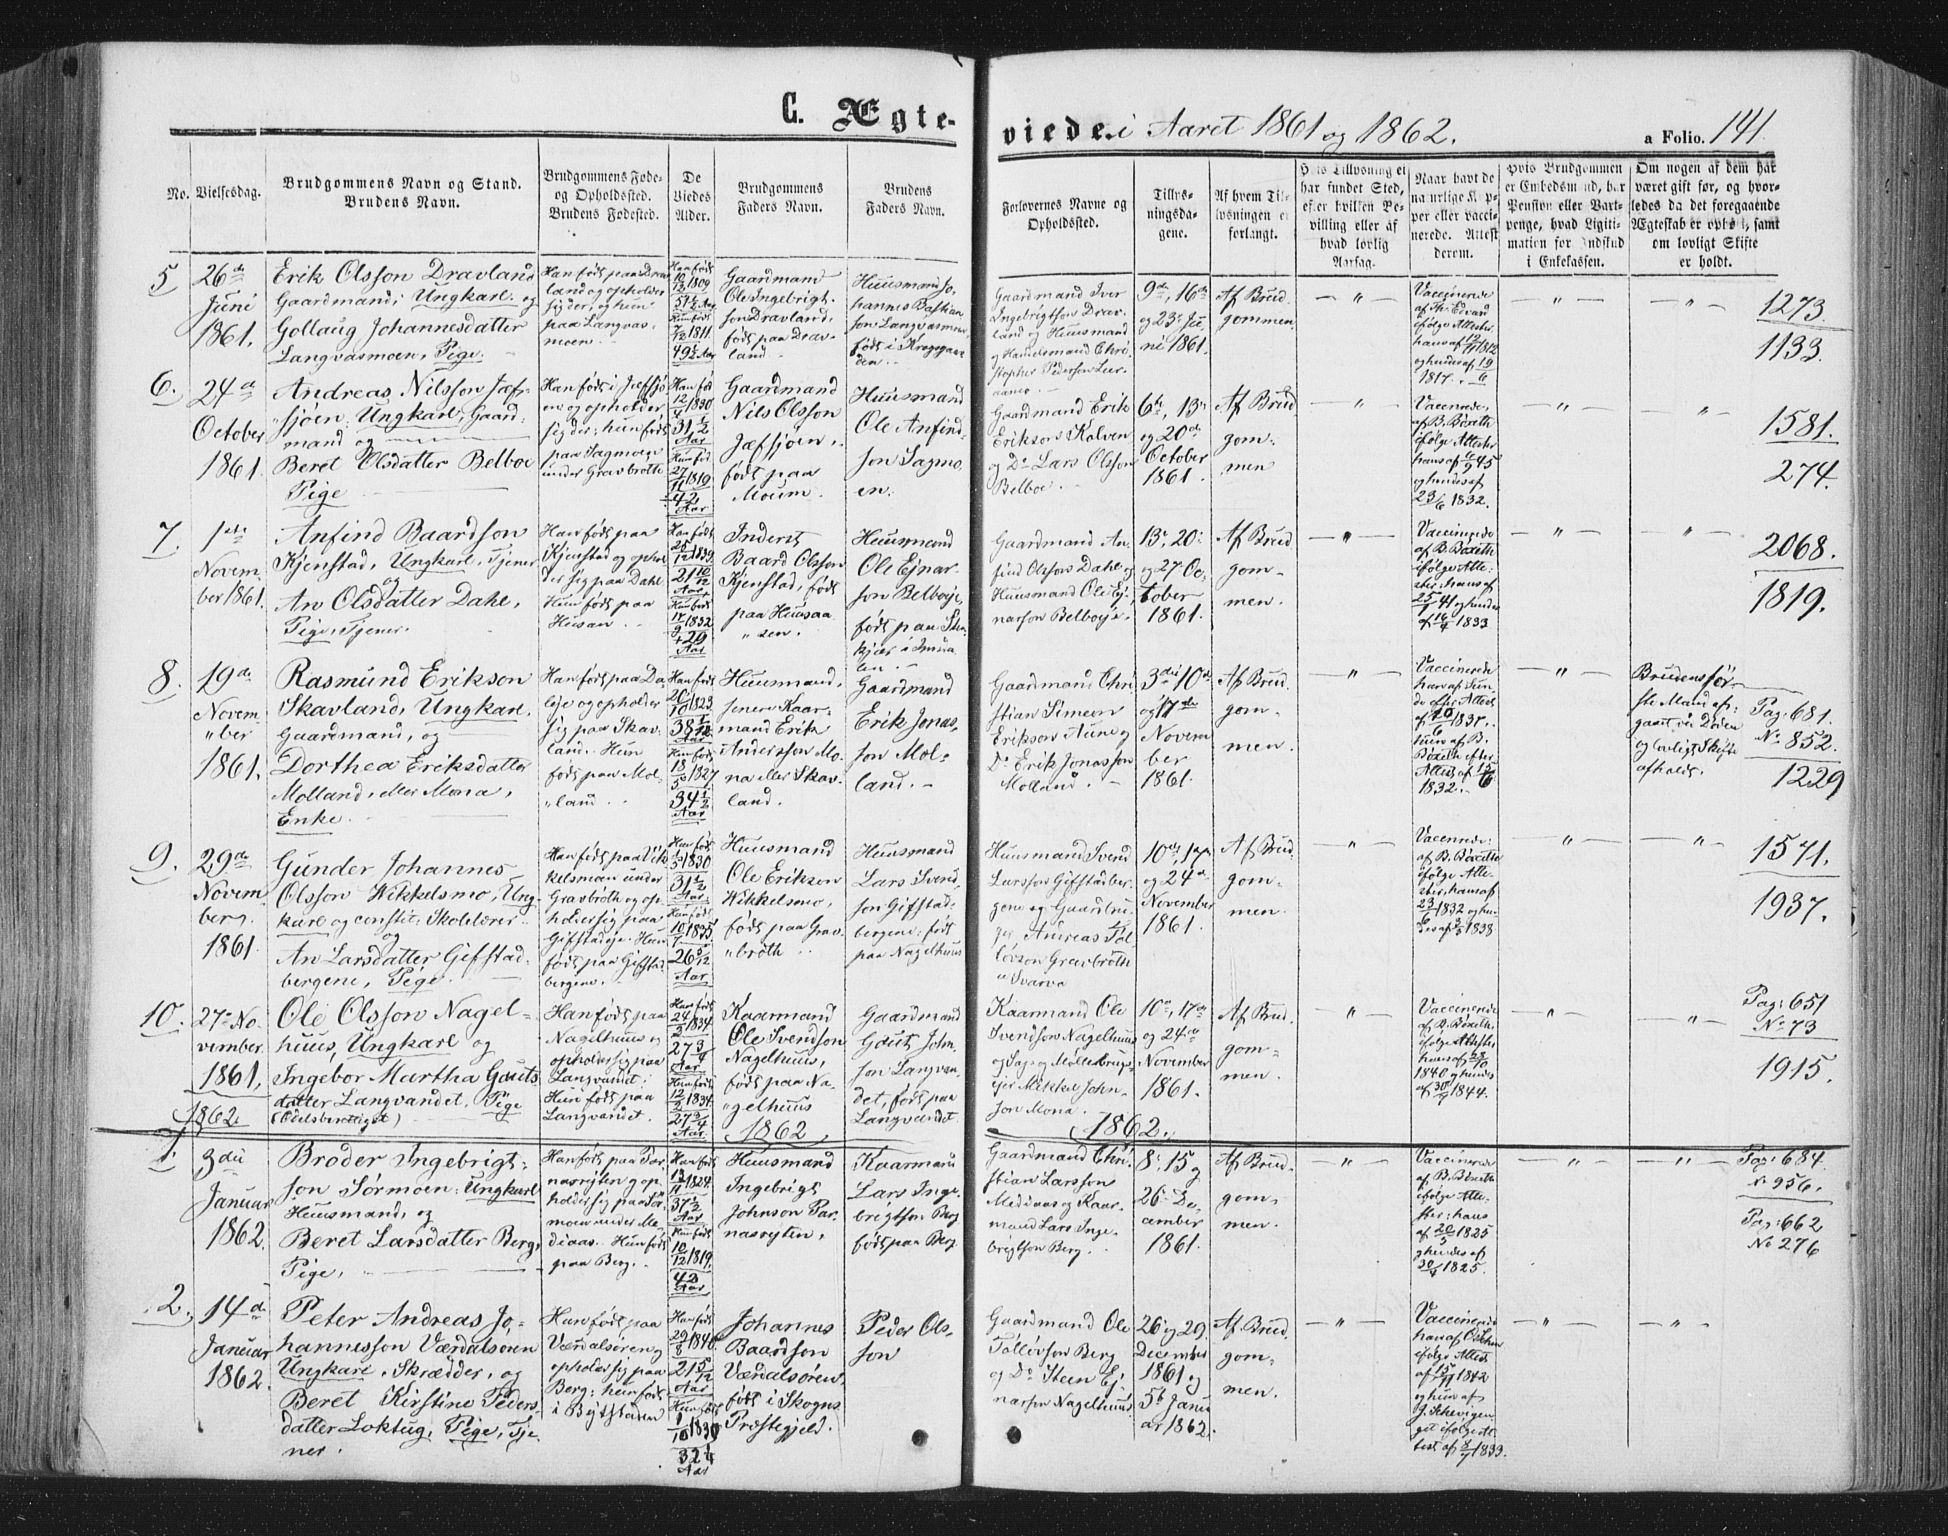 C. Ægte-
viede. i Aaret 1861 og 1862.
a Folio. 141.
No.
Vielsesdag.
Brudgommens Navn og Stand.
Brudens Navn.
Brudgommens Føde-
og Opholdssted.
Brudens Fødested.
De
Viedes
Alder.
Brudgommens
Faders Navn.
Brudens
Faders Navn.
Forlovernes Navne og
Opholdssted.
Tillys-
ningsda-
gene.
Af hvem Til-
lysningen er
forlangt.
Hvis Tillysning ei
har fundet Sted,
efter hvilken Be-
villing eller af
hvad lovlig
Aarsag.
Naar havt de
naturlige Kop-
per eller vacci-
nerede. Attest
derom.
Hvis Brudgommen
er Embedsmand, har
Pension eller Vart-
penge, hvad Legiti-
mation for Indskud
i Enkekassen.
Om nogen af dem har
været gift før, og hvor-
ledes da det foregaaende
Ægteskab er ophørt, samt
om lovligt Skifte
er holdt.
5
26de
Juni
1861.
Erik Olsson Dravland
Gaardmand, Ungkarl og
Gollaug Johannesdatter
Langvasmoen, Pige.
Han født paa Drav-
land og opholder
sig der; hun
paa Langvas-
moen
Han født
10/12 1809
51 1/2 Aar
Hun født
7/12 1811.
49 1/2 Aar
Gaardmand
Ole Ingebrigt-
son Dravland,
født paa Drav-
land.
Huusmand Jo-
hannes Bastian
son Langvasmoen
født i Krogsgaar
den
Gaardmand Iver
Ingebrigtson Drav-
land og Huusmand
og Handelsmand Chri-
stopher Pederson Leer-
aamo.
9de, 16de
og 23de Ju-
ni 1861.
Af Brud-
gommen
Vaccinerede
1273
1133.
6.
24de
October
1861.
Andreas Nilsson Jæf-
sjøen, Ungkarl, Gaard-
mand og
Beret Olsdatter Belboe
Pige
Han født i Jæfsjø
en og opholder
sig der; hun født
paa Sagmoen
under Gravbrøth
Han født
12/4 1830
31 1/2
Aar
Hun født
27/11 1819
42
Aar
Gaardmand
Nils Olsson
Jæfsjøen,
født paa
Moum.
Huusmand
Ole Anfind-
son Sagmo-
en.
Gaardmand Erik
Eriksons Kolven
og Do Lars Olsson
Belboe.
6te, 13de
og 20de
October
1861.
Af Brud
gom-
men
Vaccinerede,
af B. Børeth
ifølge Attester
23/6 1832.
1581.
274.
7.
1ste
Novem
ber 1861.
Anfind Baardson
Kjenstad, Ungkarl, Tjener
og
An Olsdatter Dahl,
Pige, Tjener.
Han født paa
Kjenstad og ophol
der sig paa Dahl
Hun født paa
Husan
Han født
25/12 1839
21 10/12
Aar
Hun født
17/9 1832
29
Aar
Inderst
Baard Olsson
Kjenstad, født
paa Huusaa
sen.
Huusmand
Ole Ejnar-
son Belboye,
født paa Sten
kjær i Snaa
en.
Gaardmand An-
find Olsson Dahl og
Huusmand Ole Ej-
narson Belboye.
13de, 20de
og 27 Oc-
tober
1861.
Af Brud
gom-
men.
Vaccinerede
af B. Børeth
ifølge Atte-
ster: hans af
25/1 41 og hendes
af 16/7 1833
2068.
1819.
8.
19de
Novem
ber
1861.
Rasmund Erikson
Skavland, Ungkarl,
Gaardmand, og
Dorthea Eriksdatter
Molland, eller Mona,
Enke.
Han født paa Da-
leje og opholder
sig paa Skav-
land. Hun
født paa Mol-
land.
Han født
20/10 1823
38 1/12
Aar
Hun født
18/5 1827
34 1/2
Aar
Huusmand,
senere Kaar-
mand Erik
Andersson Mo-
na eller Skav-
land.
Gaardmand
Erik Jonas-
son Mol-
land.
Gaardmand Chri-
stian Simeon
Erikson Aune og
Do Erik Jonasson
Molland.
3die 10de
og 17de
Novem
ber
1861.
Af Brud-
gom-
men.
Vaccinerede
1832.
Brudens før-
ste Mand af-
gaaet ved Døden
og lovligt Skifte
afholdt.
Pag: 681.
No 852.
1229
9.
29de
Novem
berg.
1861.
Gunder Johannes
Olsson Wikkelsmo, Ung-
karl og constit. Skolelærer
og
An Larsdatter Gifstad-
bergene, Pige.
Han født paa Vik-
kelsmoen under
Gravbrøth og op-
holder sig paa
Gifstadeje. Hun
født paa Gifstad
bergene.
Han født
1830
31 1/2
Aar
Hun født
10/1 1835
26
Aar
Huusmand
Ole Erikson
Wikkelsmo,
født paa Grav-
brøth
Huusmand
Lars Svend-
son Gifstad-
bergene: født
paa Nagelhuus
Huusmand Svend
Larsson Gifstadber-
gene og Gaardbru-
ger Andreas Tol-
løvson Gravbrøth
Svarva
10de, 17de
og 24de
November
1861.
Af Brud.
gom-
men.
Vaccinerede:
af B. Børeth
ifølge Atte-
ster, hans af
23/6 1832 og hen-
des af 1838
1571.
1937.
10.
27de No-
vember
1861.
Ole Olsson Nagel-
huus, Ungkarl og
Ingebor Martha Gauts
datter Langvandet, Pige
(Odelsberettiget)
Han født paa
Nagelhuus og
opholder sig paa
Langvandet:
Hun født paa
Langvandet.
Han født
24/2 1834
27 3/4
Aar
Hun født
12/2 1834
27 3/4
Aar
Kaarmand
Ole Svendson
Nagelhuus,
født paa Na-
gelhuus
Gaardmand
Gaut John-
son Langvan-
det, født paa
Langvandet
Kaarmand Ole
Svendson Nagelhuus
og Sag- og Møllebrugs-
ejer Mikkel John-
son Mona.
10de, 17de
og 24de
November
1861.
Af Brud.
gom-
men.
Vaccinerede
af B. Børeth
1840 og hendes
af 30/7 1844.
Pag: 651
No 73
1915.
1862
1862
1862.
1.
3die
Januar
1862.
Broder Ingebrigt-
son Sørmoen, Ungkarl
Huusmand, og
Beret Larsdatter Berg,
Pige,
Han født paa Par-
nasryten og op-
holder sig paa Sør-
moen under Me-
diaas. Hun født
paa Berg.
Han født
13/11 1824
37 1/2
Aar
Hun født
10/12 1819.
42
Aar
Huusmand
Ingebrigt
Johnson Par-
nasryten,
Kaarmand
Lars Inge-
brigtson Berg
født paa Berg
Gaardmand Chri-
stian Larsson
Mediaas og Kaar-
mand Lars Inge-
brigtson Berg.
8de 15 og
26de De-
cember
1861.
Af Brud-
gom-
men.
Vaccinerede
af B. Børeth
ifølge Atte-
ster: hans
af 20/5 1825
og hendes af
30/4 1825.
Pag: 684.
No 956.
Pag: 662
No 276
2.
14de
Januar
1862.
Peter Andreas Jo-
hannesson Værdalsøren
Ungkarl, Skrædder, og
Beret Kirstine Peders
datter Loktug, Pige, Tje-
ner.
Han født paa
Værdalsøren og
opholder sig paa
Berg; hun født
i Bytstaden
Han født
29/8 1840
21 5/12
Aar
Hun født
32 1/4
Aar
Johannes
Baardson
Værdalsøren
født i Skogns
Præstegjeld.
Peder Ols-
son
Gaardmand Ole
Tolløvson Berg
og Do Steen Ej-
narson Nagelhuus
26 og 29
December
1861 og
5te Janu
ar 1862.
Af Brud-
gom-
men.
Vaccinerede
ifølge Attest
af 15/11 1842
og hun af
get ifølge At-
test af 8/7 1833.